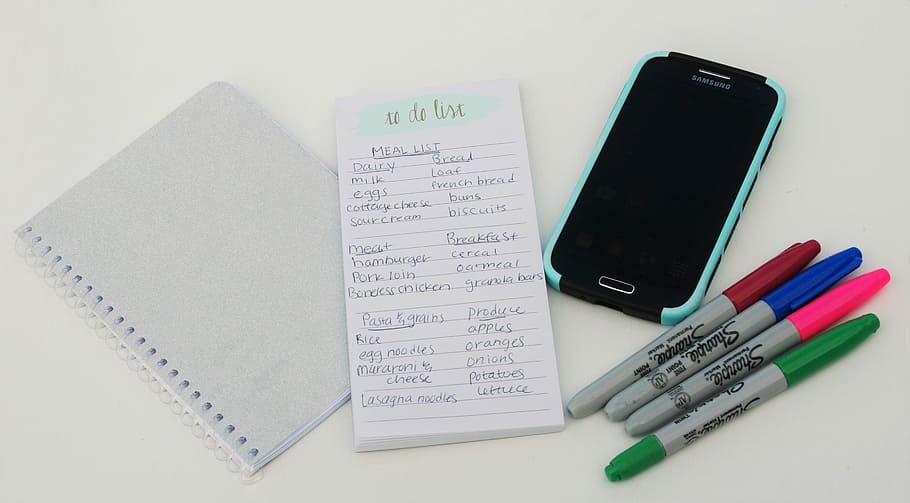 to do list
MEAL LIST
Dairy Bread
milk Loaf
eggs french bread
cottage cheese buns
sour cream biscuits
meat Breakfast
hamburger cereal
Pork loin oatmeal
Boneless chicken granola bars
Pasta & grains produce
Rice apples
egg noodles oranges
macaroni & onions
cheese Potatoes
Lasagna noodles lettuce
SAMSUNG
Sharpie
FINE POINT
Permanent Marker
Sharpie
FINE POINT
Permanent Marker
Sharpie
Permanent Marker
Sharpie